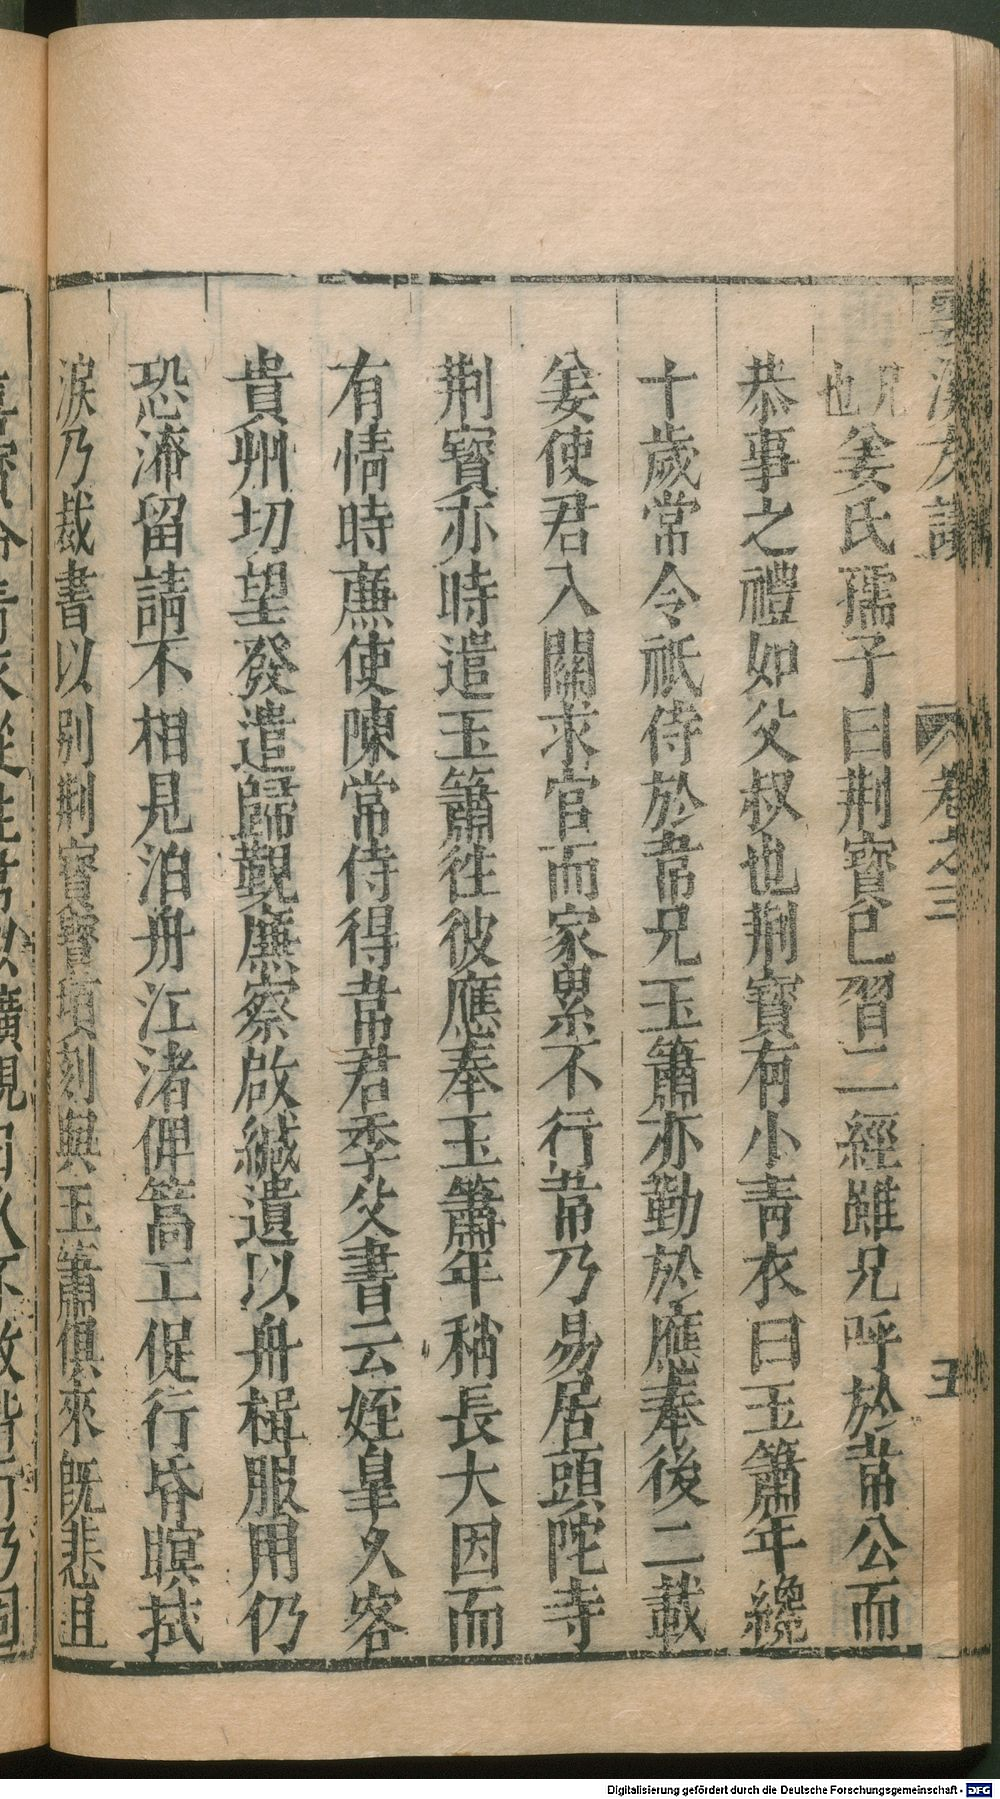 雲溪友議 卷之三 五
兄也姜氏孺子曰荆寶已習二經雖兄呼於韋公而
恭事之禮如父叔也荆寶有小青衣曰玉簫年纔
十歲常令祇侍於韋兄玉簫亦勤於應奉後二載
姜使君入關求官而家累不行韋乃易居頭陀寺
荆寶亦時遣玉簫往彼應奉玉簫年稍長大因而
有情時廉使陳常侍得韋君季父書云姪皐久客
貴州切望發遣歸覲廉察啟緘遺以舟楫服用仍
恐淹留請不相見泊舟江渚俾篙工促行昏暝拭
淚乃裁書以别荆寶寶頃刻與玉簫俱來既悲且
喜寳命青衣從往韋以曠覲日久不敢偕行乃固
Digitalisierung gefördert durch die Deutsche Forschungsgemeinschaft - DFG